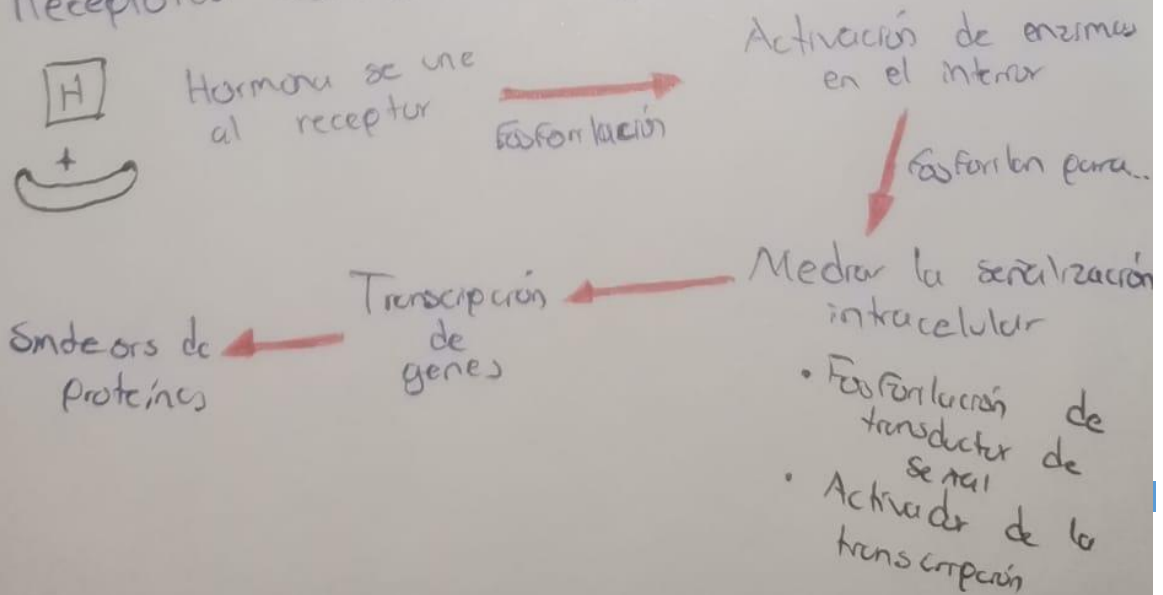 Hormona se une
al receptor
H
+
Fosforilación
Activación de enzimas
en el interior
Fosforilan para..
Mediar la señalización
intracelular
• Fosforilación de
transductor de
señal
• Activador de la
transcripción
Transcipción
de
genes
de
proteínas